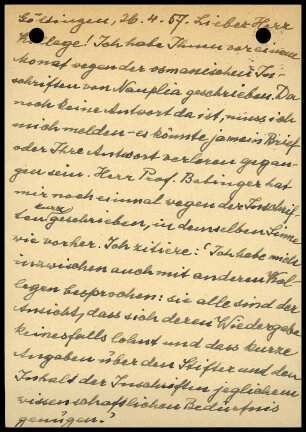 Göttingen, 26.4.67. Lieber Herr
Kollege! Ich habe Ihnen vor einem
Monat wegen der osmanischen In-
schriften von Nauplia geschrieben. Da
noch keine Antwort da ist, muss ich
mich melden - es könnte ja mein Brief
oder Ihre Antwort verloren gegan-
gen sein. Herr Prof. Babinger hat
mir noch einmal wegen der Inschrif-
ten kurz geschrieben, in demselben Sinne
wie vorher. Ich zitiere: "Ich habe mich
inzwischen auch mit anderen Kol-
legen besprochen: sie alle sind der
Ansicht, dass sich deren Wiedergabe
keinesfalls lohnt und dass kurze
Angaben über den Stifter und den
Inhalt der Inschriften jeglichem
wissenschaftlichen Bedürfnis
genügen."